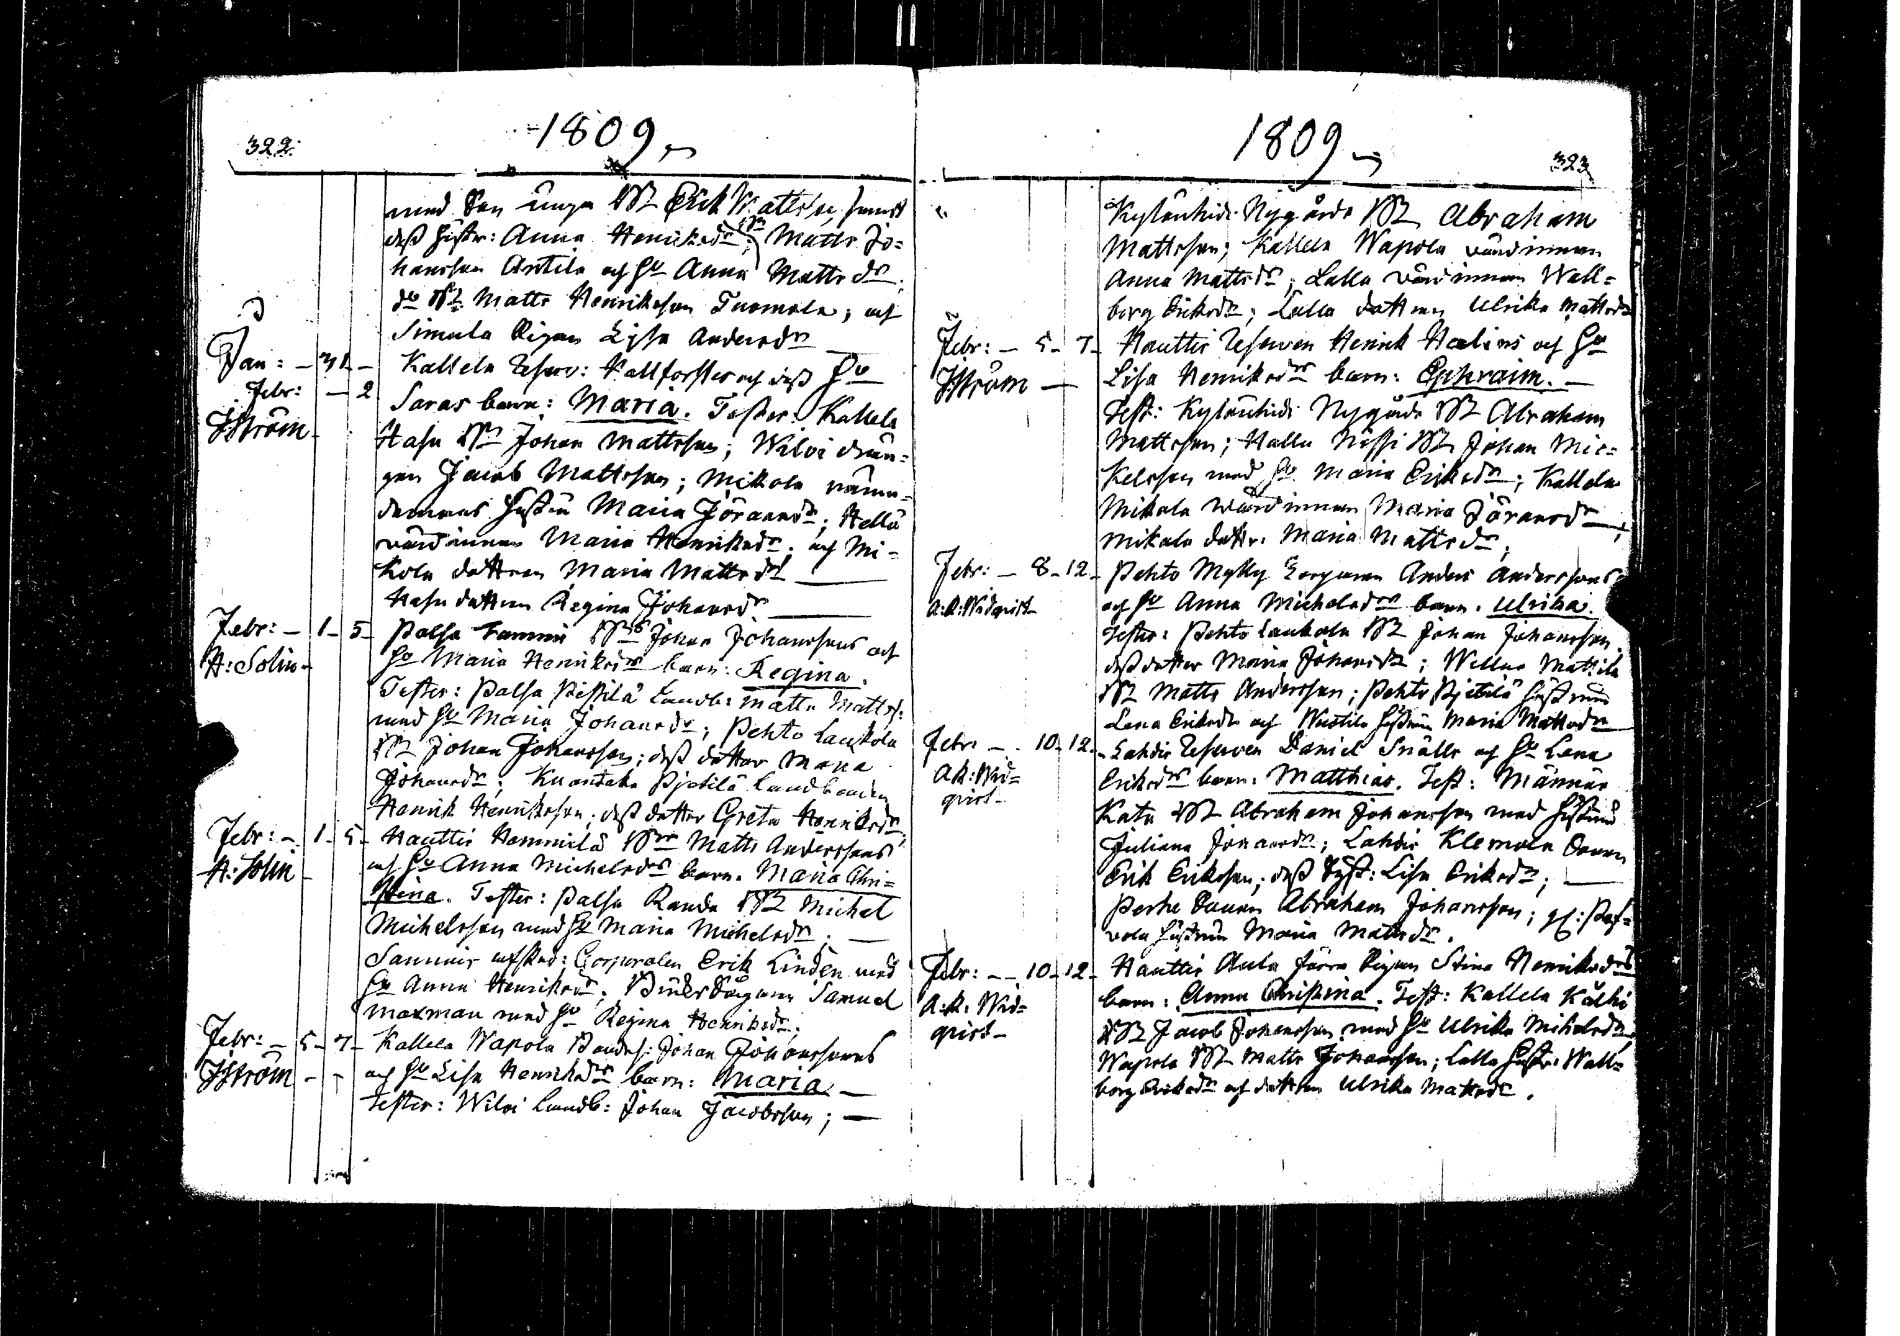 322.
1809
med Son unga Erik Mattss: samt
dess Hustr: Anna Henricsdr; Matts Jo=
hansson Antila och Hu Anna Matts dr;
do Matts Henriksson Tuomola; och
Simula Pigan Lisa Andersdr
Jan: - 31 - Kallela Reserv: Hallforss och dess Hu
Febr: - 2 Saras barn: Maria. Tester: Kallela
JStröm Hasu Johan Mattsson; Wilvi drän=
gen Jacob Mattsson; Mikola nämn=
demans Hustru Maria Göransdr; Hellä
värdinnan Maria Henriksdr; och Mi=
kola dottren Maria Mattsdr
Hasu dottren Regina Johansdr
Febr: - 1 - 5 - Palsa Tammi Johan Johanssons och
A: Solin - Hu Maria Henriksdrs barn: Regina.
Tester: Palsa Pissilä Landb: Matts Matts:
med Hu Maria Johansdr; Pehto Laukola
Johan Johansson; dess dotter Maria
Johansdr; Pietilä Landbonden
Henrik Henriksson; dess dotter Greta Henriksdr
Febr: - 1 - 5 - Hauttis Hemmilä Matts Anderssons
A: Solin - och Hu Anna Michelsdrs barn. Maria Chri=
stina. Tester: Palsa Randa Michel
Michelsson med Hu Maria Michelsdr;
Sammis afsked: Corporalen Erik Lindén med
Hu Anna Henriksdr; Samuel
Maxman med Hu Regina Henriksdr;
Febr: - 5 - 7 - Kallela Wapola Bondes: Johan Johanssons
JStröm - - och Hu Lisa Henriksdrs barn: Maria
Tester: Wilvi Landb: Johan Jacobsson;
1809
323
Nygårds Abraham
Mattsson; Kallela Wapola värdinnan
Anna Mattsdr; Lalla värdinnan Wall=
borg Eriksdr; Lalla dottren Ulrika Mattsdr
Febr: - 5 - 7 - Hauttis Reserven Henrik Helins och Hu
JStröm - Lisa Henriksdrs barn: Ephraim.
Test: Nygårds Abraham
Mattsson; Halla Nissi Johan Mic=
kelsson med Hu Maria Eriksdr; Kallela
Mikola wärdinnan Maria Göransdr;
Mikola dottr. Maria Mattsdr;
Febr: - 8 - 12 - Pehto Mylly Torparen Anders Anderssons
A: A: Widqvist - och Hu Anna Michelsdrs barn. Ulrika.
Tester: Pehto Laukola Johan Johansson,
dess dotter Maria Johansdr; Mattila
Matts Andersson; Pehto Pietilä Hustrun
Lena Eriksdr och Hustrun Maria Mattsdr
Febr: - 10 - 12 - Lahdis Reserven Daniel Snälls och Hu Lena
A: A: Wid= Eriksdrs barn: Matthias. Test: Männär
qvist - Katu Abraham Johansson med Hustrun
Juliana Johansdr; Lahdis Klemola Sonen
Erik Eriksson; dess Syst: Lisa Eriksdr;
Perhe Sonen Abraham Johansson;
Hustrun Maria Mattsdr.
Febr: - - 10 - 12 - Hauttis Aula Pigan Stina Henriksdrs
A: A: Wid= barn: Anna Christina. Test: Kallela Kälhi
qvist - Jacob Johansson med Hu Ulrika Michelsdr;
Wapola Matts Johansson; Lalla Hustr: Wall=
borg Eriksdr och dottren Ulrika Mattsdr.